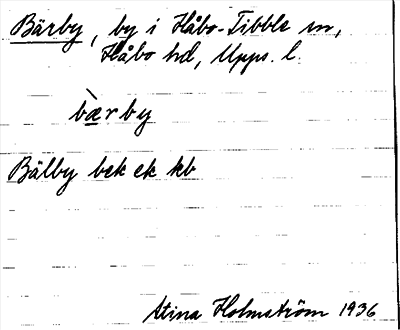 Bärby, by i Håbo-Tibble sn,
Håbo hd, Upps. l.
bæ̀rby
Bälby bek ek kb
Stina Holmström 1936